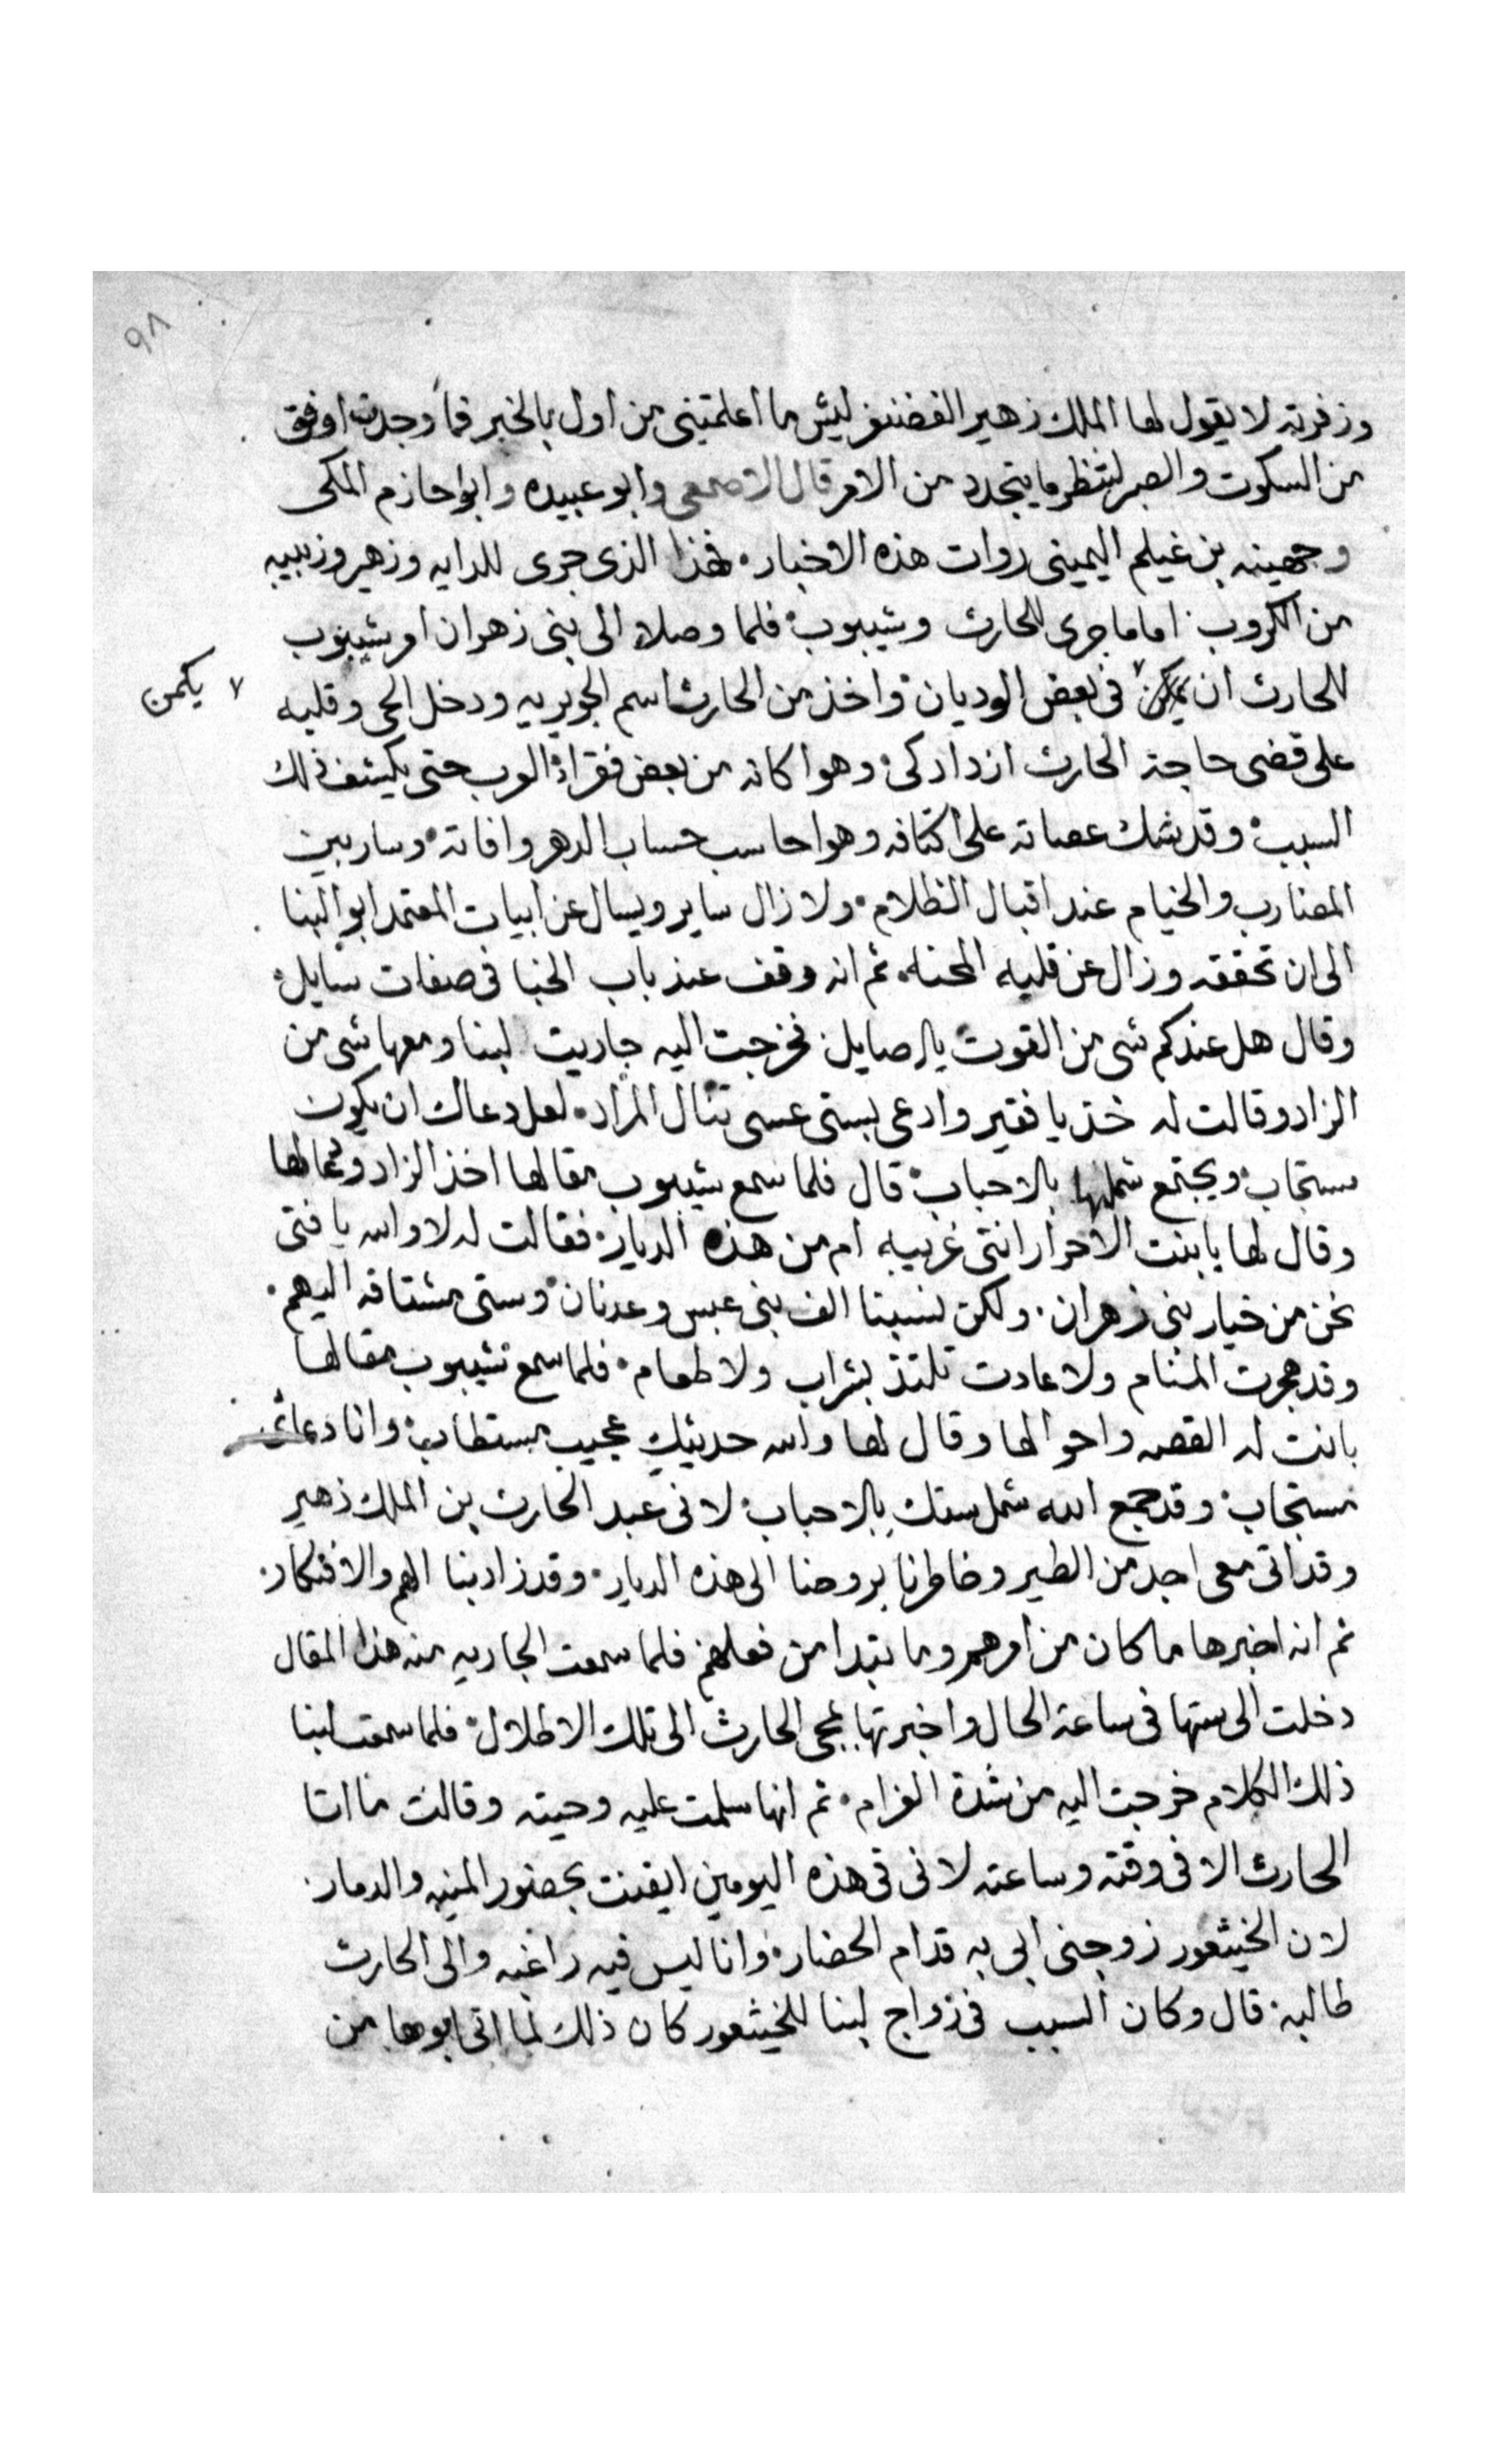 ٩٨
وزفرته لا يقول لها الملك زهير الغضنفر ليش ما اعلمتينى من اول بالخبر فما وجدت اوفق
من السكوت والصبر لتنظر ما يتجدد من الامر قال الاصمعى وابو عبيده وابوا حازم المكى
وجهينه بن غيلم اليمينى روات هذه الاخبار فهذا الذى جرى للدايه وزهير وزبيبه
من الكروب اما ما جرى للحارث وشيبوب فلما وصلا الى بنى زهران امر شيبوب
للحارث ان فى بعض الوديان واخذ من الحارث اسم الجويريه ودخل الحى وقلبه
٧ يكمن
على قضى حاجة الحارث ازداد كى وهوا كانه من بعض فقراء العرب حتى يكشف ذلك
السبب وقد شك عصاته على اكتافه وهوا حاسب حساب الدهر وافاته وسار بين
المضارب والخيام عند اقبال الظلام ولا زال ساير ويسال عن ابيات المعتمد ابو البنا
الى ان تحققه وزال عن قلبه المحنه ثم انه وقف عند باب الخبا فى صفات سايل
وقال هل عندكم شى من القوت يال صايل فخرجت اليه جاريت لبنا ومعها شى من
الزاد وقالت له خذ يا فقير وادعى لستى عسى تنال المراد لعل دعاك ان يكون
مستجاب ويجتمع شملها بالاحباب قال فلما سمع شيبوب مقالها اخذ الزاد ودعا لها
وقال لها يا بنت الاحرار انتى غريبه ام من هذه الديار فقالت له لا والله يا فتى
نحن من خيار بنى زهران ولكن نسبنا الف بنى عبس وعدنان وستى مشتاقه اليهم
وقد هجرت المنام ولا عادت تلتذ بشراب ولا طعام فلما سمع شيبوب مقالها
بانت له القصه واحوالها وقال لها والله حديثك عجيب مستطاب وانا دعائى
مستجاب وقد جمع الله شمل ستك بالاحباب لانى عبد الحارث بن الملك زهير
وقد اتى معى اجد من الطير وخاطرنا بروحنا الى هذه الديار وقد زاد بنا الهم والافتكار
ثم انه اخبرها ما كان من امرهم وما بتدا من فعلهم فلما سمعت الجاريه منه هذا المقال
دخلت الى ستها فى ساعة الحال واخبرتها بمجى الحارث الى تلك الاطلال فلما سمعت لبنا
ذلك الكلام خرجت اليه من شدة الغرام ثم انها سلمت عليه وحيته وقالت ما اتا
الحارث الا فى وقته وساعته لانى فى هذه اليومين ايقنت بحضور المنيه والدمار
لان الخيثعور زوجنى ابى به قدام الحضار وانا ليس فيه راغبه والى الحارث
طالبه قال وكان السبب فى زواج لبنا للخيثعور كان ذلك لما اتى ابوها من